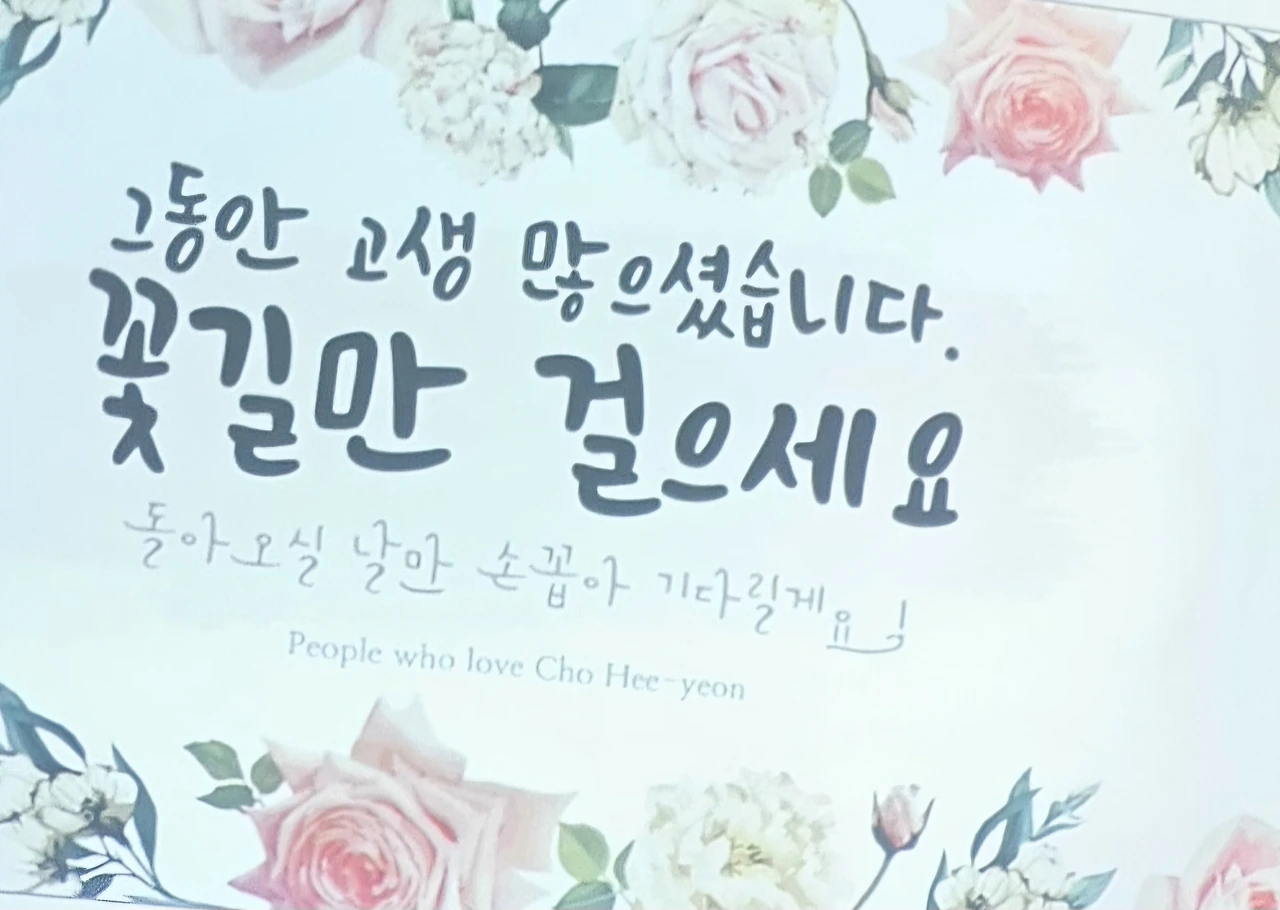 그동안 고생 많으셨습니다.
꽃길만 걸으세요
돌아오실 날만 손꼽아 기다릴게요!
People who love Cho Hee-yeon